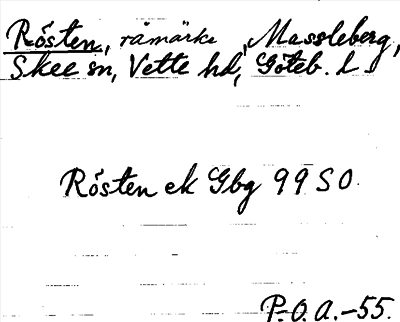 Rösten, råmärke, Massleberg,
Skee sn, Vette hd, Göteb. l
Rösten ek Gbg 99 SO.
P.O.A.-55.